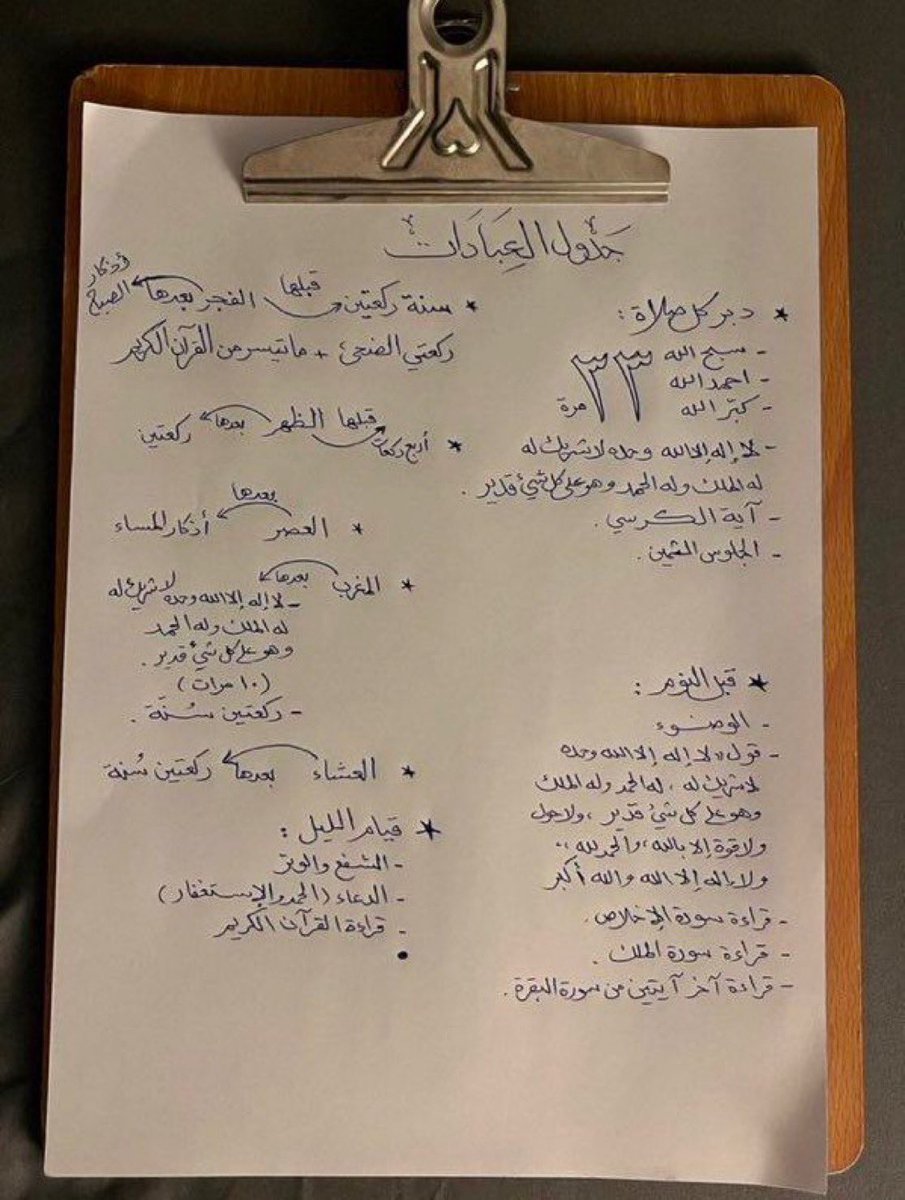 جَدْوَل العِبَادَاتْ
* دبر كل صلاة :
- سبح الله
- احمد الله
- كبّر الله
٣٣ مرة
- لا إله إلا الله وحده لا شريك له
له الملك وله الحمد وهو على كل شيء قدير .
- آية الكرسي .
- الجلوس الثمين .
* قبل النوم :
- الوضوء
- قول " لا إله إلا الله وحده
لا شريك له ، له الحمد وله الملك
وهو على كل شيء قدير ، ولا حول
ولا قوة إلا بالله ، والحمد لله ،
ولا إله إلا الله والله أكبر
- قراءة سورة الإخلاص .
- قراءة سورة الملك .
- قراءة آخر آيتين من سورة البقرة .
* سنة ركعتين قبلها الفجر بعدها أذكار الصباح
ركعتي الضحى + ماتيسر من القرآن الكريم
* أربع ركعات قبلها الظهر بعدها ركعتين
* العصر بعدها أذكار المساء
* المغرب بعدها
- لا إله إلا الله وحده لا شريك له
له الملك وله الحمد
وهو على كل شيء قدير .
(١٠ مرات)
- ركعتين سُنّة .
* العشاء بعدها ركعتين سُنة
* قيام الليل :
- الشفع والوتر
- الدعاء (الحمد والإستغفار)
- قراءة القرآن الكريم